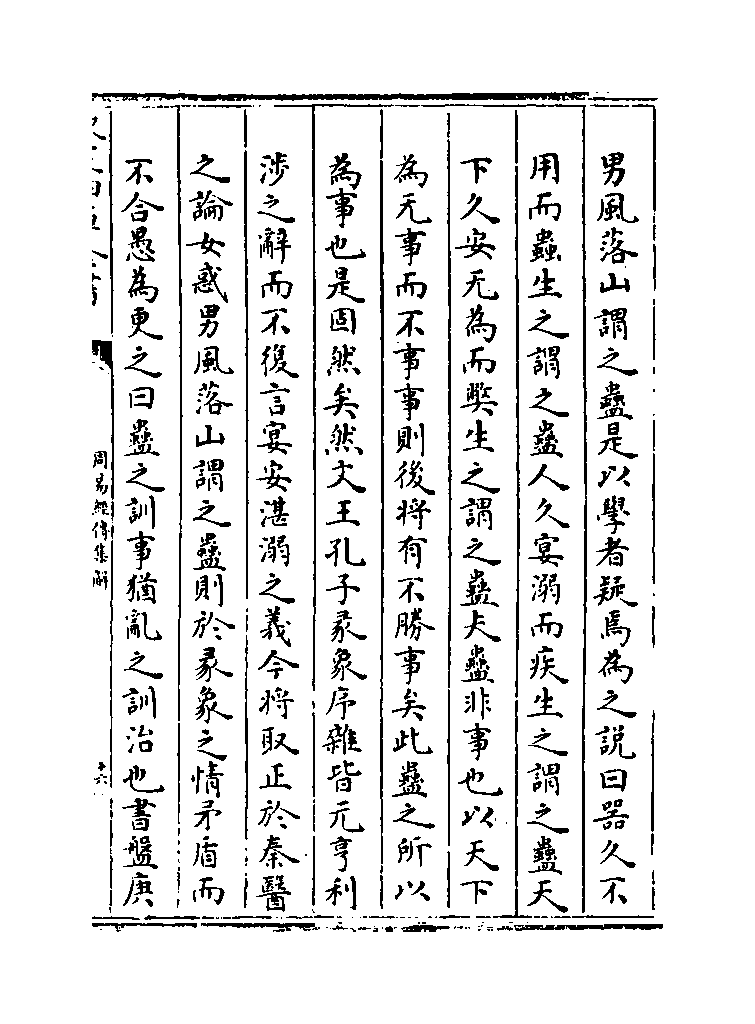 男風落山謂之蠱是以學者疑焉為之説曰器久不
用而蟲生之謂之蠱人久宴溺而疾生之謂之蠱天
下久安无為而弊生之謂之蠱夫蠱非事也以天下
為无事而不事事則後將有不勝事矣此蠱之所以
為事也是固然矣然文王孔子彖象序雜皆元亨利
涉之辭而不復言宴安湛溺之義今將取正於秦醫
之論女惑男風落山謂之蠱則於彖象之情矛盾而
不合愚為更之曰蠱之訓事猶亂之訓治也書盤庚
周易經傳集解
十六